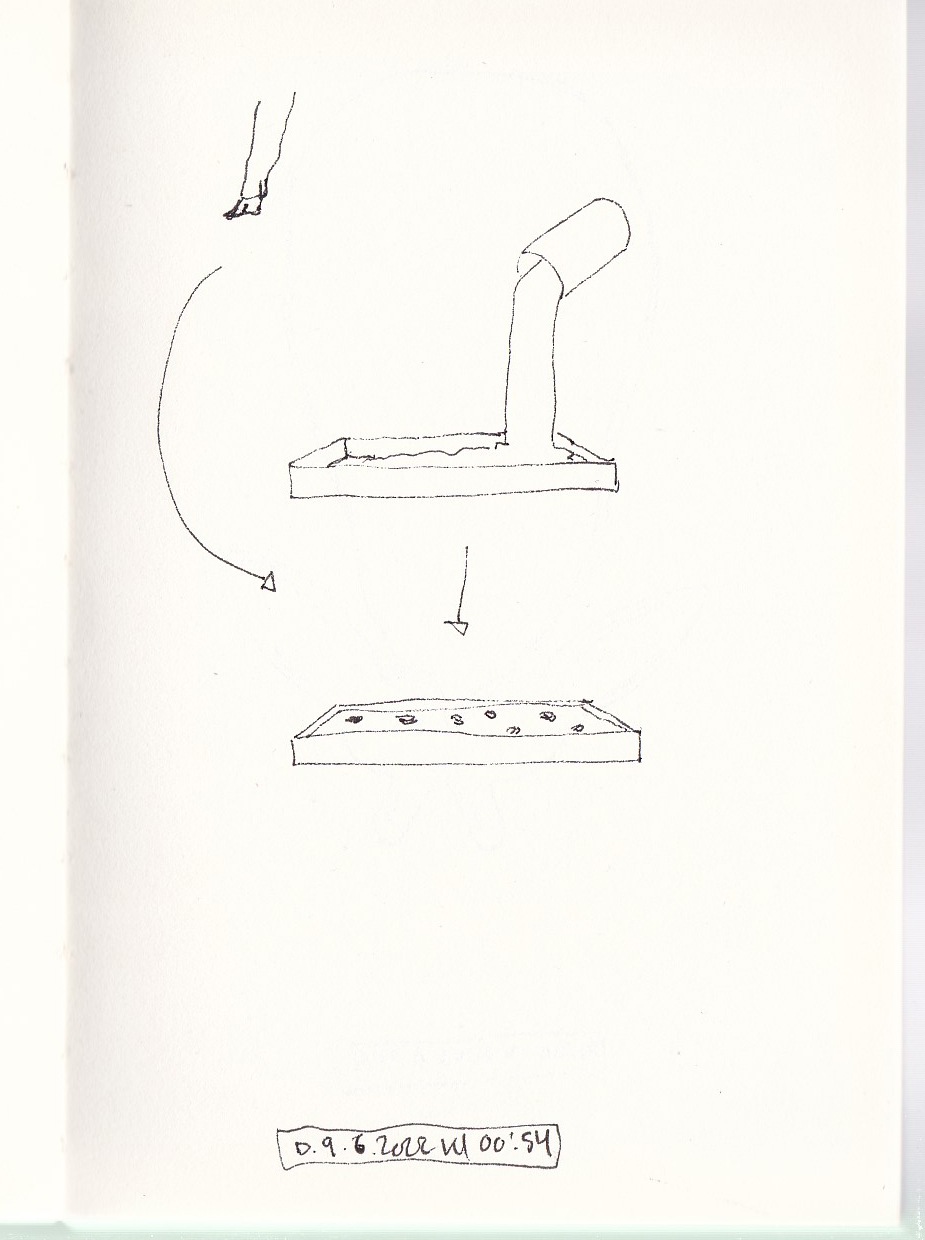 D. 9. 6. 2022 VU 00:54